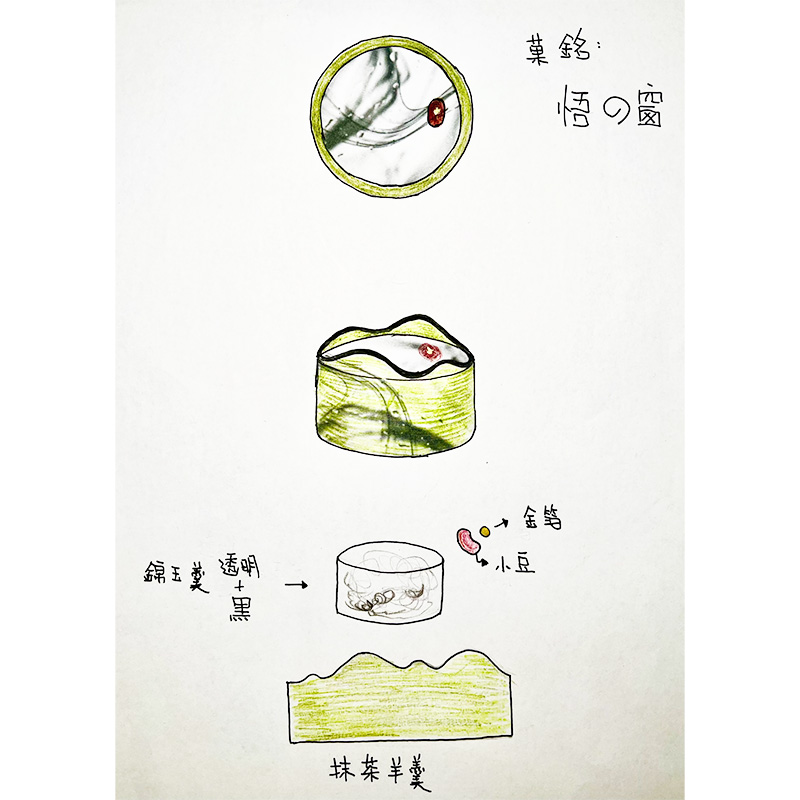 菓銘:
悟の窗
金箔
小豆
錦玉羹 透明
+
黒
抹茶羊羹